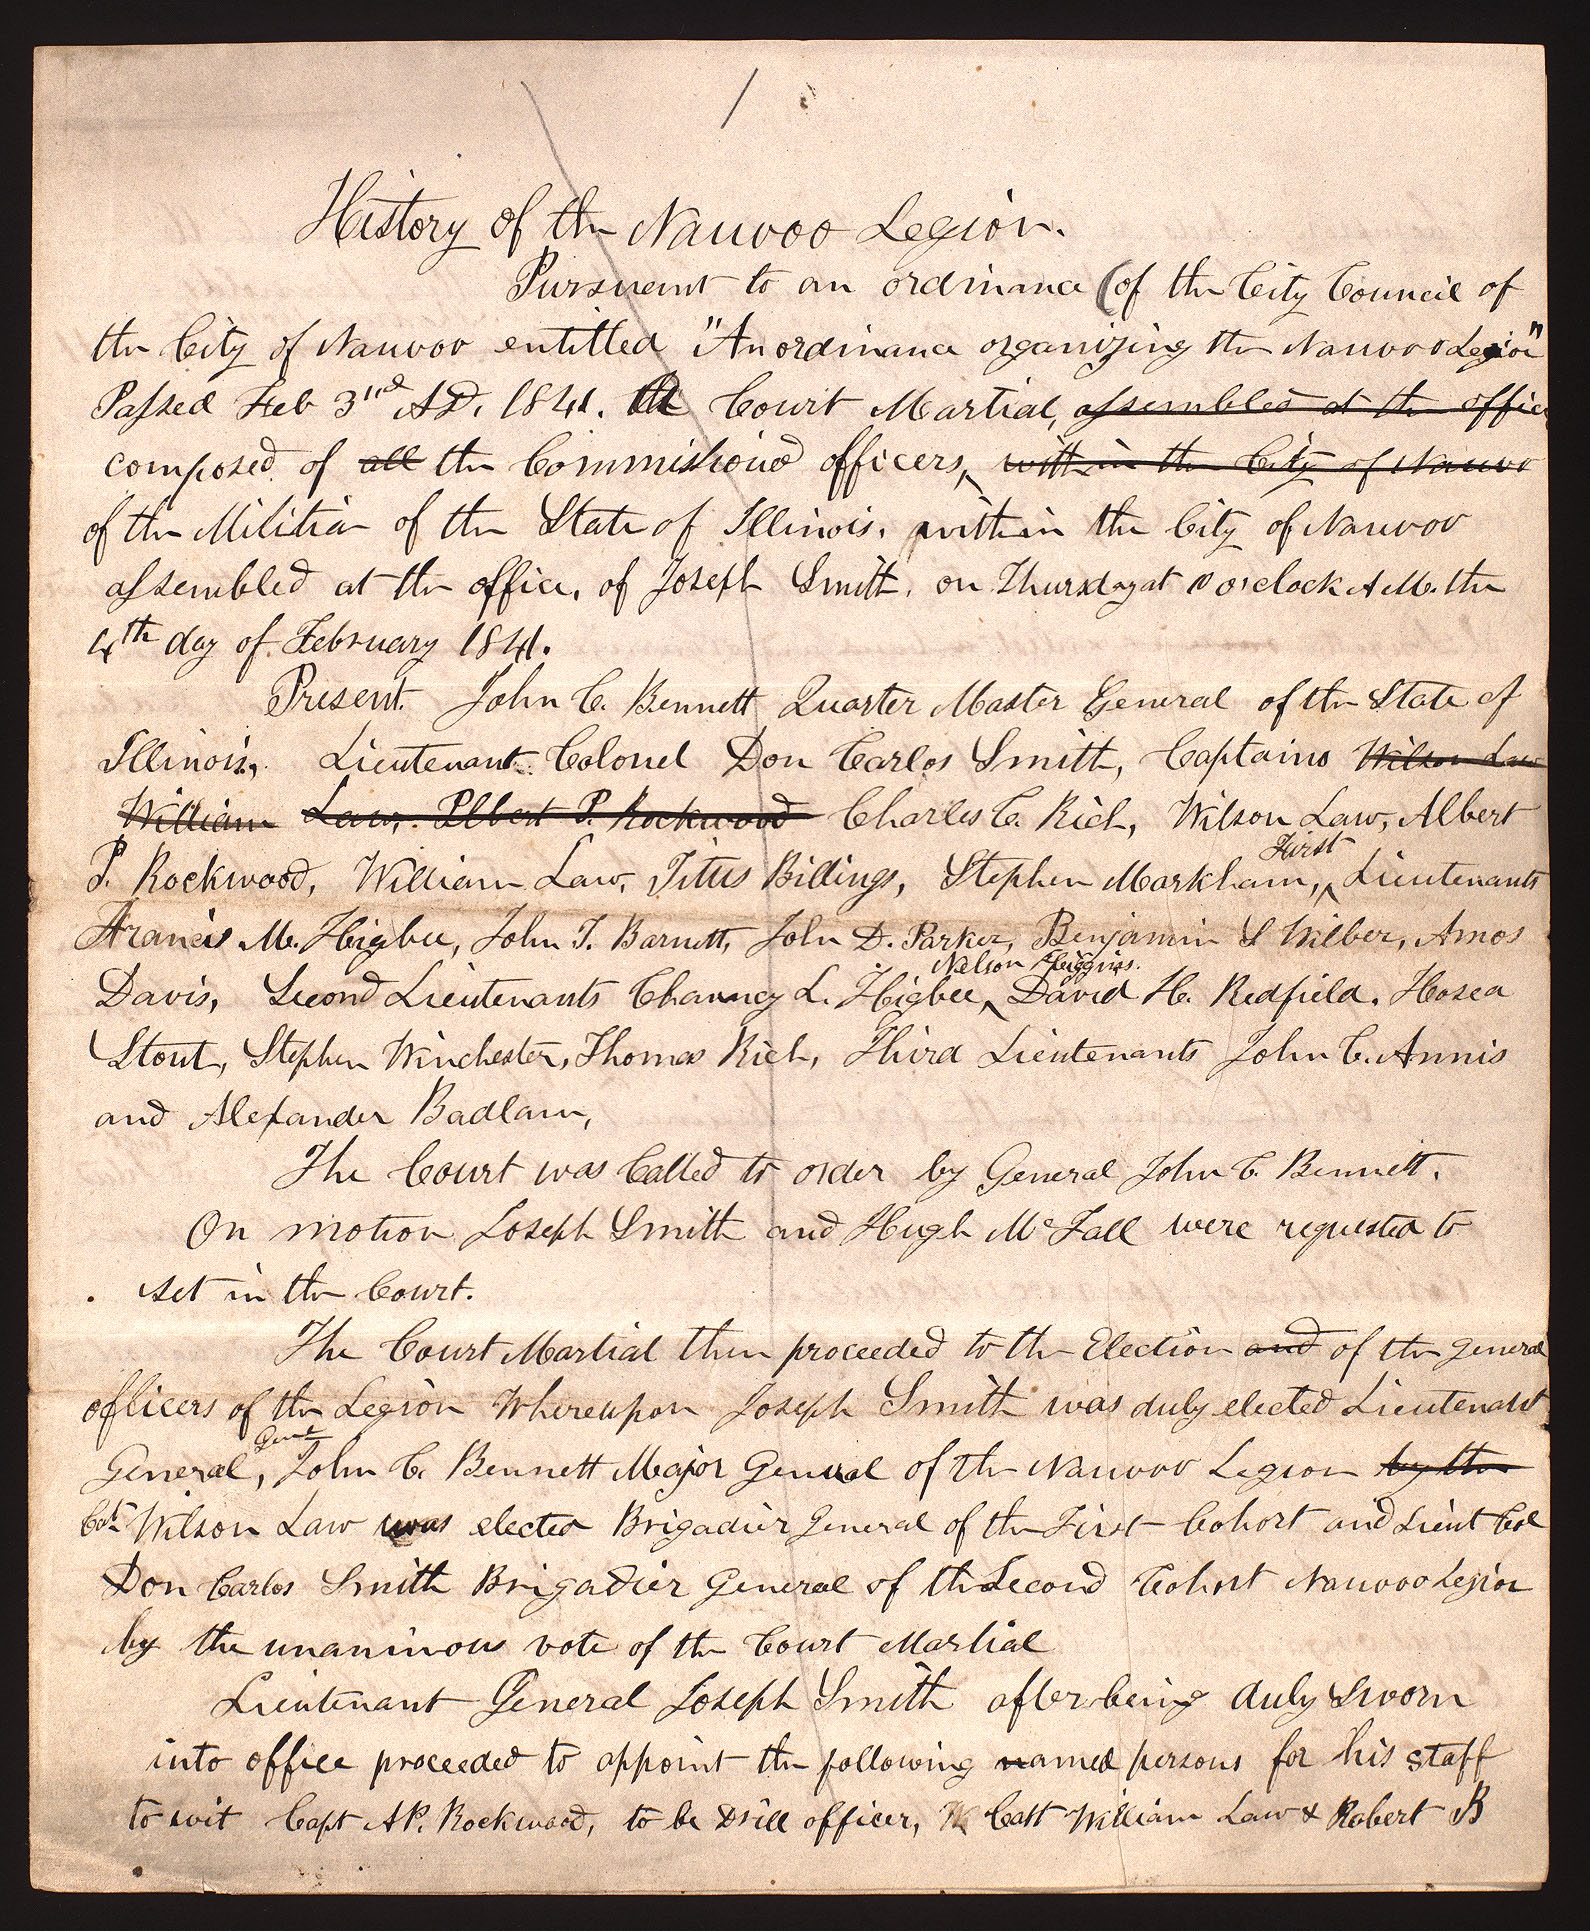 /
History of the Nauvoo Legion.
Pursuent to an ordinance (of the City Council of
the City of Nauvoo entitled "An ordinance organizing the Nauvoo Legion"
Passed Feb 3rd AD. 1841. the Court Martial, assembled at the office
composed of all the Commissioned officers, within the City of Nauvoo
of the Militia of the State of Illinois. within the City of Nauvoo
assembled at the office, of Joseph Smith, on Thursday at 10 o'clock A.M. the
4th day of February 1841.
Present. John C. Bennett Quarter Master General of the State of
Illinois, Lieutenant Colonel Don Carlos Smith, Captains Wilson Law
William Law, Albert P. Rockwood Charles C. Rich, Wilson Law, Albert
First
P. Rockwood, William Law, Titus Billings, Stephen Markham, Lieutenants
Francis M. Higbee, John T. Barnett, John D. Parker, Benjamin S Wilber, Amos
Nelson Higgins.
Davis, Second Lieutenants Chauncy L. Higbee, David H. Redfield. Hosea
Stout, Stephen Winchester, Thomas Rich, Third Lieutenants John C. Annis
and Alexander Badlam,
The Court was Called to order by General John C. Bennett.
On motion Joseph Smith and Hugh McFall were requested to
set in the Court.
The Court Martial then proceeded to the Election and of the general
officers of the Legion Whereupon Joseph Smith was duly elected Lieutenant
Genl
General, John C. Bennett Major General of the Nauvoo Legion by the
Capt Wilson Law was elected Brigadier General of the First Cohort and Lieut Col
Don Carlos Smith Brigadier General of the Second Cohort Nauvoo Legion
by the unaninous vote of the Court Martial
Lieutenant General Joseph Smith after being duly Sworn
into office proceeded to appoint the following named persons for his staff
to wit Capt A P. Rockwood, to be Drill officer, Capt William Law & Robert B